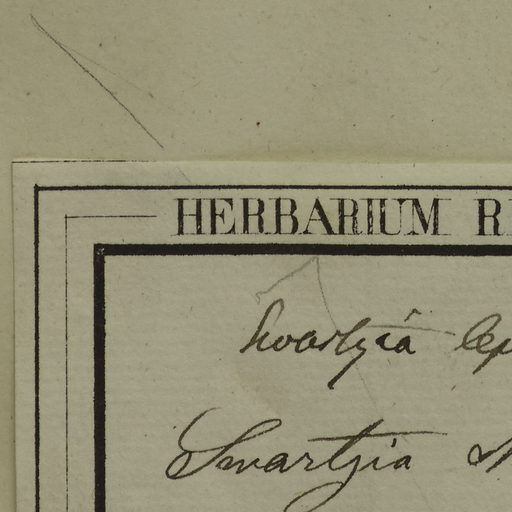 HERBARIUM R
Swartzia lep
Swartzia